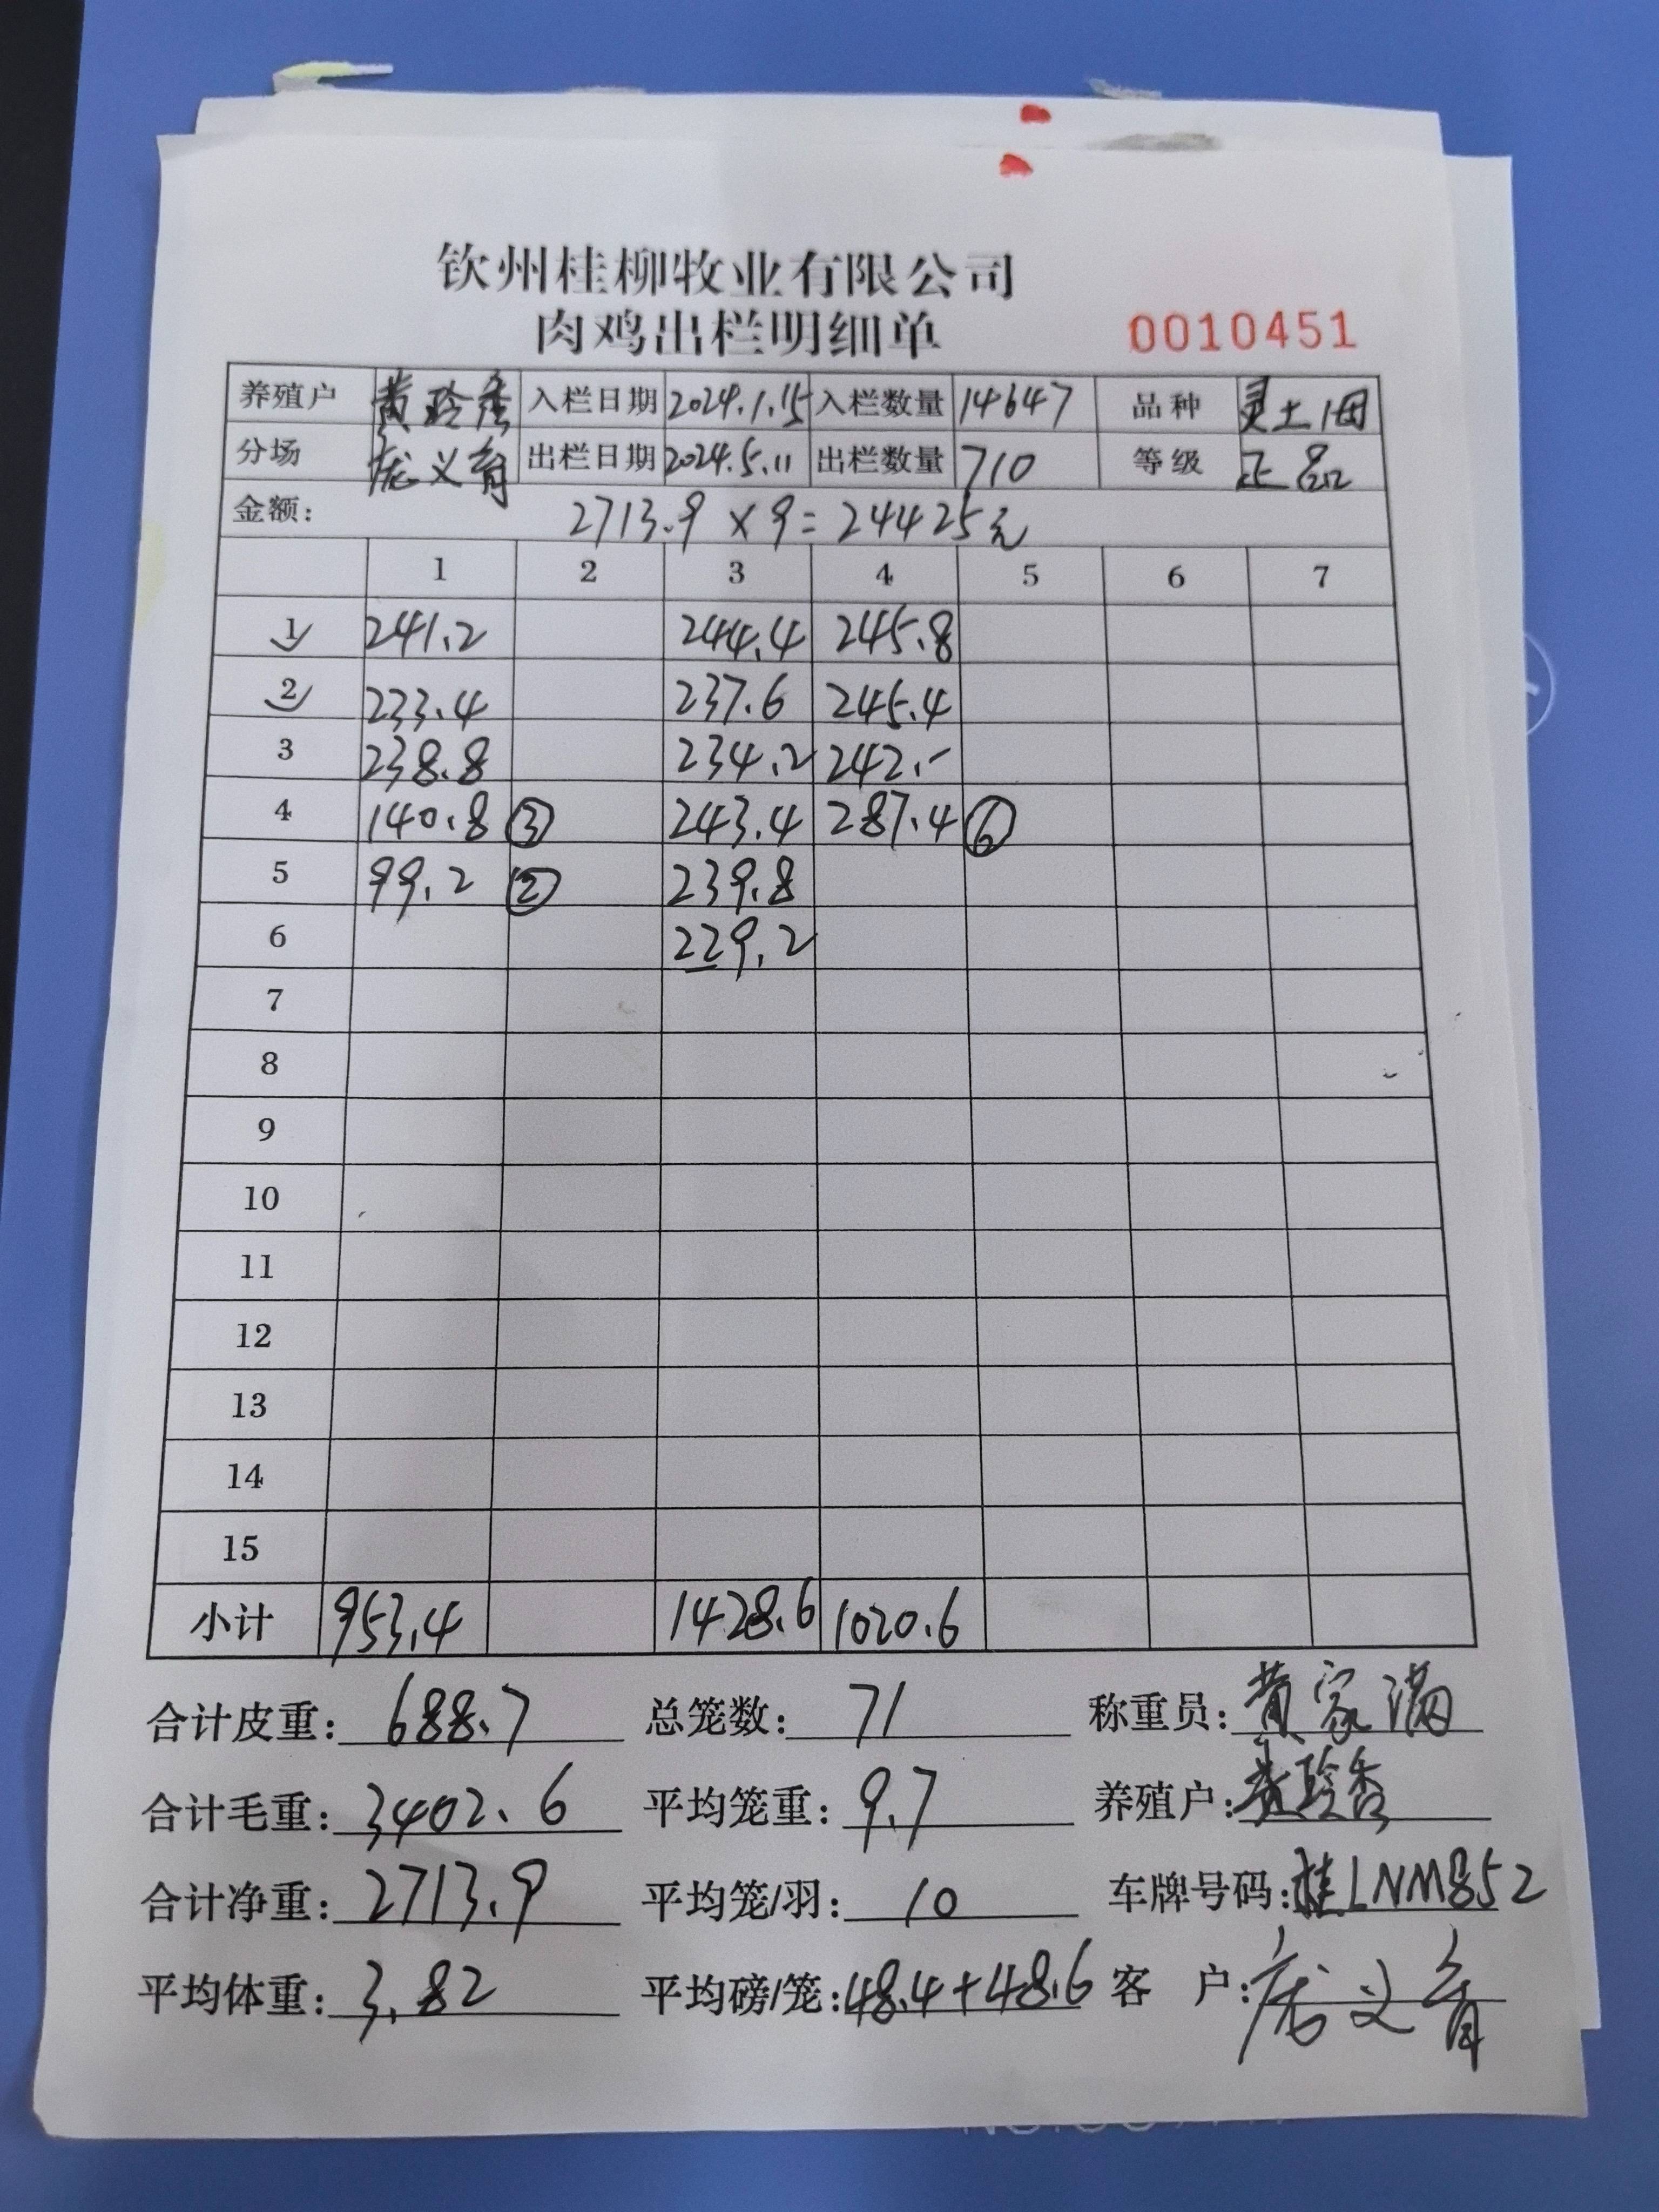 钦州桂柳牧业有限公司
肉鸡出栏明细单 0010451
养殖户 黄玲香 入栏日期 2024.1.15 入栏数量 14647 品种 灵土1母
分场 庞义育 出栏日期 2024.5.11 出栏数量 710 等级 正品
金额: 2713.9×9=24425元
1 2 3 4 5 6 7
1 241.2 244.4 245.8
2 233.4 237.6 245.4
3 238.8 234.2 242.-
4 140.8 ③ 243.4 287.4 ⑥
5 99.2 ② 239.8
6 229.2
7
8
9
10
11
12
13
14
15
小计 953.4 1428.6 1020.6
合计皮重: 688.7 总笼数: 71 称重员: 黄家满
合计毛重: 3402.6 平均笼重: 9.7 养殖户: 黄玲香
合计净重: 2713.9 平均笼/羽: 10 车牌号码: 桂LNM852
平均体重: 3.82 平均磅/笼: 48.4+48.6 客 户: 庞义育